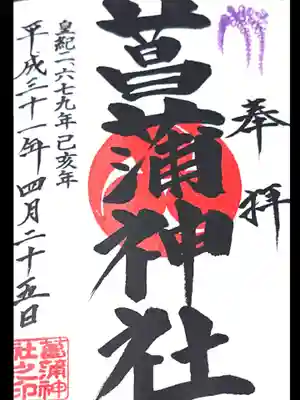 奉拝
菖蒲神社
皇紀二六七九年己亥年
平成三十一年四月二十五日
菖蒲神
社之印